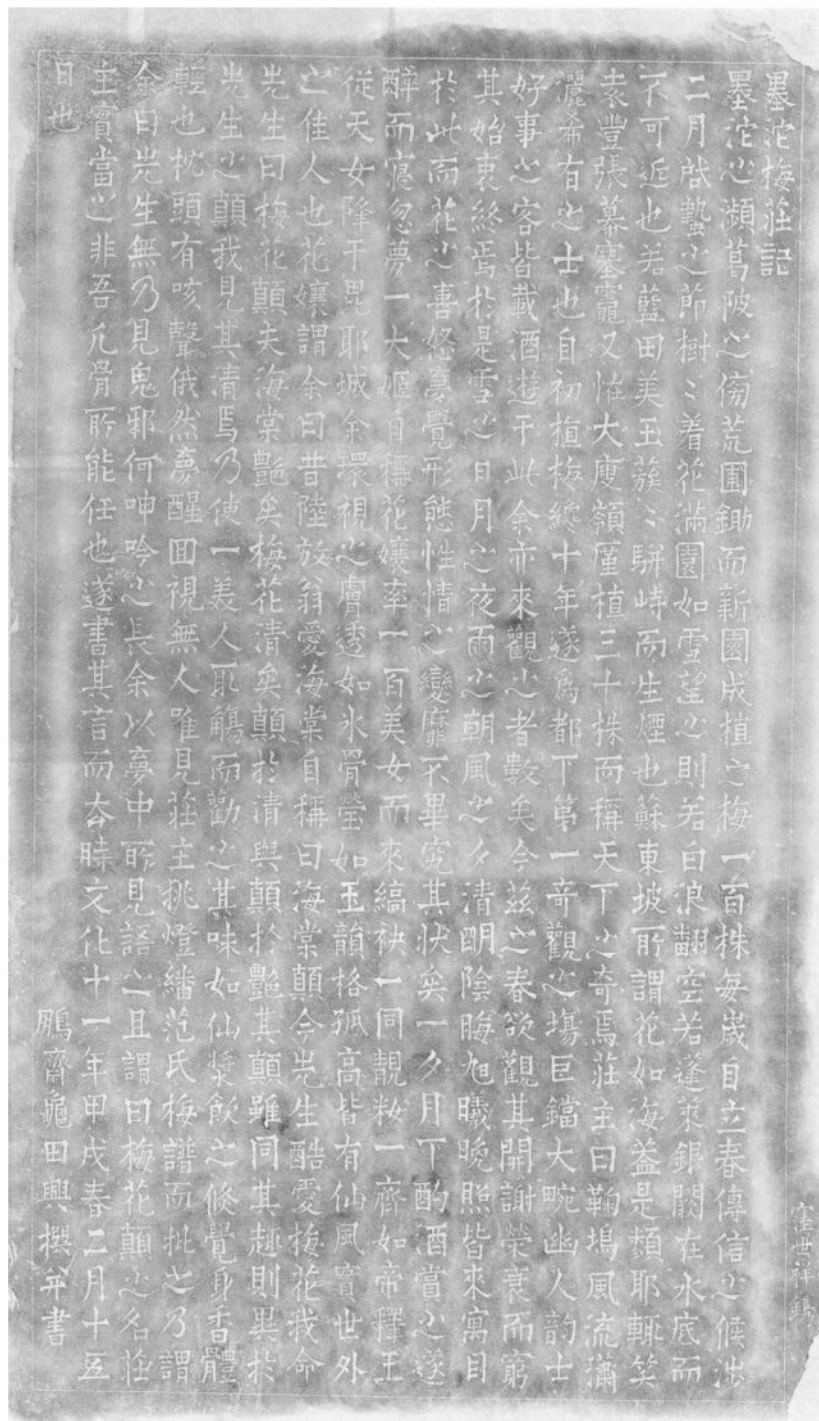 墨沱梅莊記
墨沱之瀕葛陂之傍荒圃鋤而新園成植之梅一百株每歲自立春傳信之候泲
二月啓蟄之節樹〻着花滿園如雪望之則若白浪翻空若蓬萊銀闕在水底而
不可近也若藍田美玉蔟〻駢峙而生煙也蘇東坡所謂花如海蓋是類耶輒笑
袁豐張幕塞竈又恠大庾嶺僅植三十株而稱天下之奇焉莊主曰鞠塢風流瀟
灑希有之士也自初植梅纔十年遂爲都下第一奇觀之塲巨鐺大畹幽人韵士
好事之客皆載酒遊于此余亦來觀之者數矣今茲之春欲觀其開謝榮衰而窮
其始衷終焉於是雪之日月之夜雨之朝風之夕清朙陰晦旭曦晚照皆來寓目
於此而花之喜怒夢覺形態性情之變靡不畢究其狀矣一夕月下酌酒賞之遂
醉而寢忽夢一大姬自稱花孃率一百美女而來縞袂一同靚粧一齊如帝釋王
從天女降于毘耶城余環視之膚透如氷骨瑩如玉韻格孤高皆有仙風實世外
之佳人也花孃謂余曰昔陸放翁愛海棠自稱曰海棠顛今先生酷愛梅花我命
先生曰梅花顛夫海棠艷矣梅花清矣顛於清與顛於艷其顛雖同其趣則異於
先生之顛我見其清焉乃使一美人取觴而勸之其味如仙漿飲之倏覺身香體
輕也枕頭有咳聲俄然夢醒囬視無人唯見莊主挑燈繙范氏梅譜而批之乃謂
余曰先生無乃見鬼邪何呻吟之長余以夢中所見語之且謂曰梅花顛之名莊
主實當之非吾凢骨所能任也遂書其言而去時文化十一年甲戌春二月十五
日也
鵬齋龜田興撰并書
窪世祥鐫